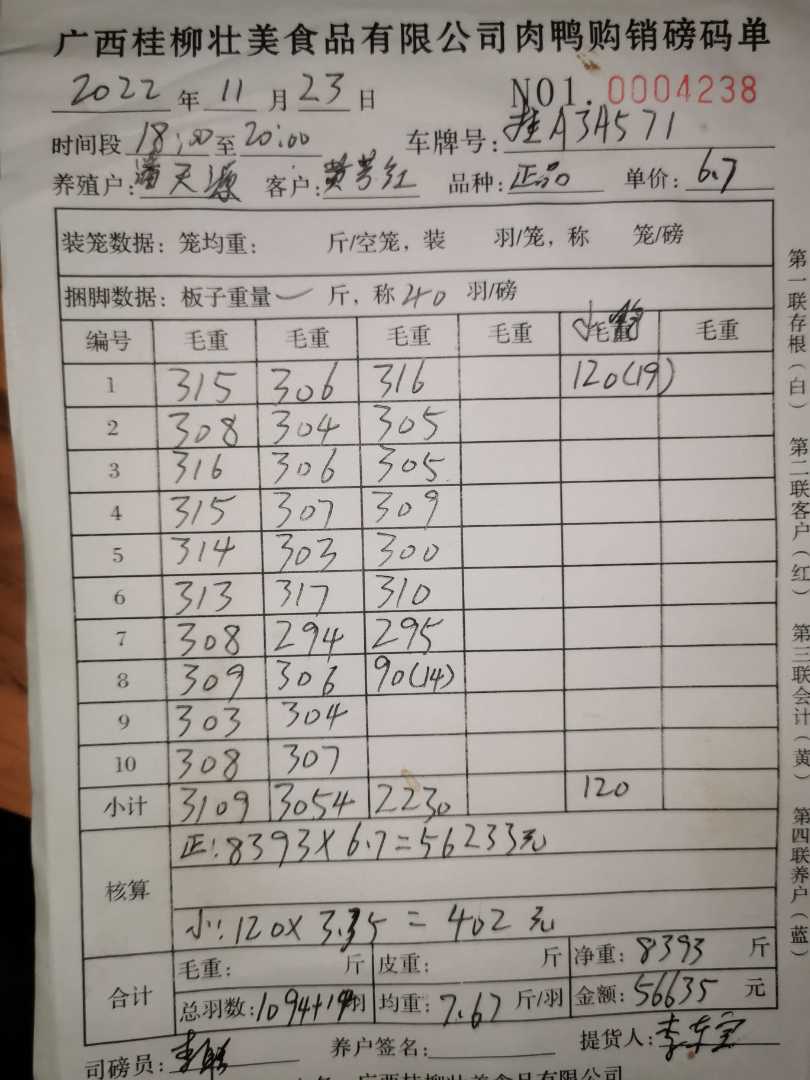 广西桂柳壮美食品有限公司肉鸭购销磅码单
2022 年 11 月 23 日 NO1. 0004238
时间段 18:00 至 20:00 车牌号: 桂A3A571
养殖户: 潘天源 客户: 黄芳红 品种: 正品 单价: 6.7
装笼数据: 笼均重: 斤/空笼, 装 羽/笼, 称 笼/磅
捆脚数据: 板子重量 一 斤, 称 40 羽/磅
编号 毛重 毛重 毛重 毛重 小毛重 毛重
1 315 306 316 120(19)
2 308 304 305
3 316 306 305
4 315 307 309
5 314 303 300
6 313 317 310
7 308 294 295
8 309 306 90(14)
9 303 304
10 308 307
小计 3109 3054 2230 120
核算 正: 8393×6.7=56233元
小: 120×3.35=402元
合计 毛重: 斤 皮重: 斤 净重: 8393 斤
总羽数: 1094+19羽 均重: 7.67 斤/羽 金额: 56635 元
司磅员: 养户签名: 提货人: 李东宝
广西桂柳壮美食品有限公司
第一联存根(白) 第二联客户(红) 第三联会计(黄) 第四联养户(蓝)